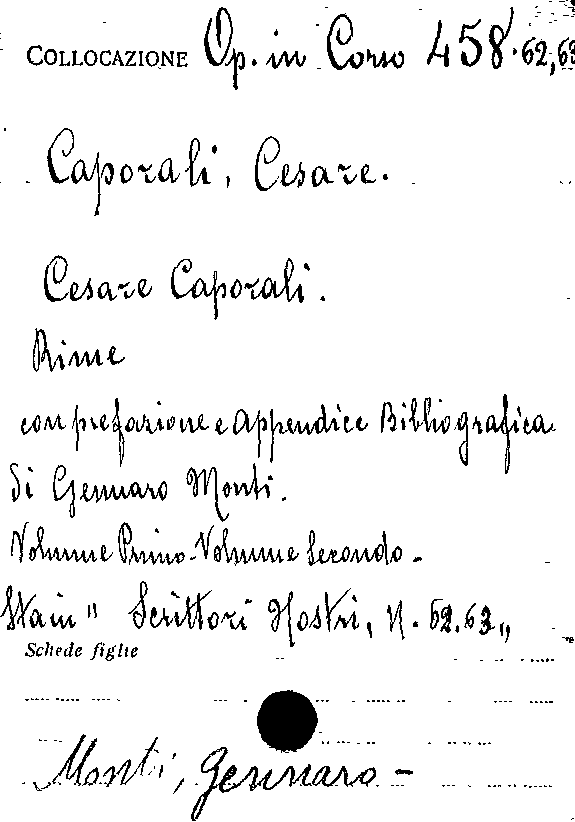 COLLOCAZIONE Op. in Corso 458.62,63
Caporali, Cesare.
Cesare Caporali.
Rime
con prefazione e Appendice Bibliografica
di Gennaro Monti.
Volume Primo-Volume Secondo-
Sta in " Scrittori Nostri, N. 62.63"
Schede figlie
Monti, Gennaro-